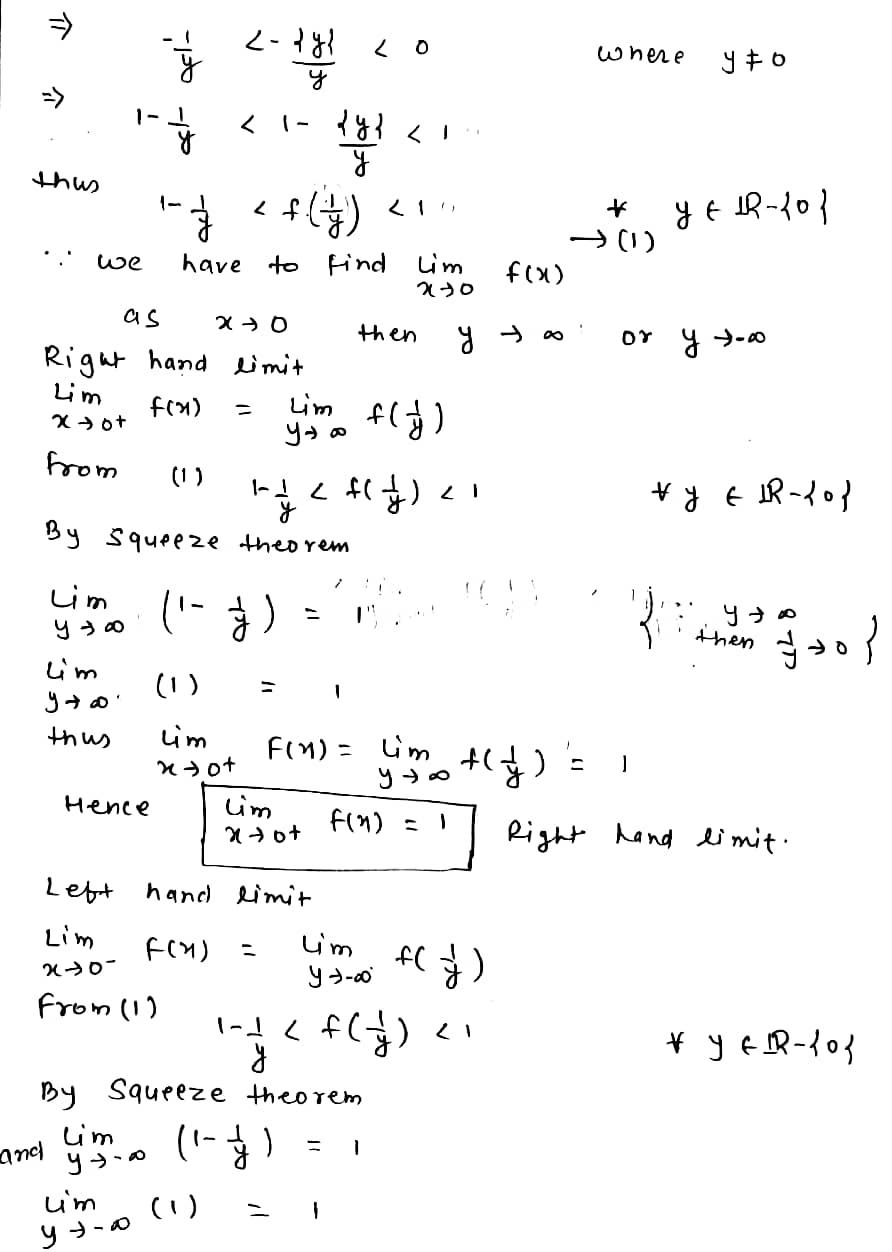 ⇒ -1/y < -{y}/y < 0 where y ≠ 0
⇒ 1-1/y < 1- {y}/y < 1
thus 1-1/y < f(1/y) < 1 ∀ y ∈ ℝ-{0}
→ (1)
∵ we have to find Lim x→0 f(x)
as x→0 then y → ∞ or y →-∞
Right hand limit
Lim x→0+ f(x) = Lim y→∞ f(1/y)
from (1) 1-1/y < f(1/y) < 1 ∀ y ∈ ℝ-{0}
By squeeze theorem
Lim y→∞ (1- 1/y) = 1 {∵ y→∞ then 1/y→0}
Lim y→∞ (1) = 1
thus Lim x→0+ F(x) = Lim y→∞ f(1/y) = 1
Hence Lim x→0+ f(x) = 1 Right hand limit.
Left hand limit
Lim x→0- f(x) = Lim y→-∞ f(1/y)
From (1) 1-1/y < f(1/y) < 1 ∀ y ∈ ℝ-{0}
By Squeeze theorem
and Lim y→-∞ (1-1/y) = 1
Lim y→-∞ (1) = 1